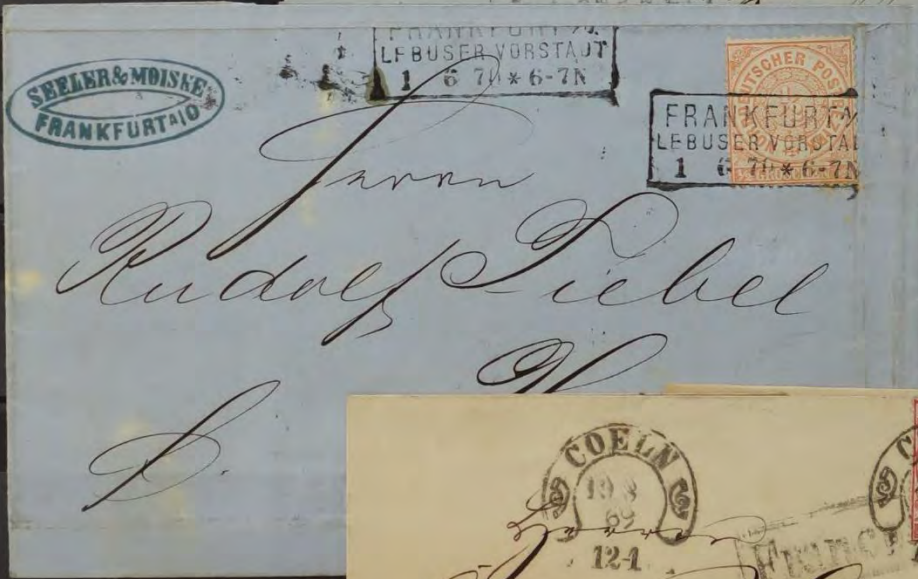 SEELER & MOISKE
FRANKFURT A/O
FRANKFURT A/
LEBUSER VORSTADT
1 6 70 * 6-7N
FRANKFURT A/
LEBUSER VORSTAD
1 6 70 * 6-7N
DEUTSCHER POST
Herrn
Rudolf Tiebel
COELN
69
12-1
Herrn
Franco